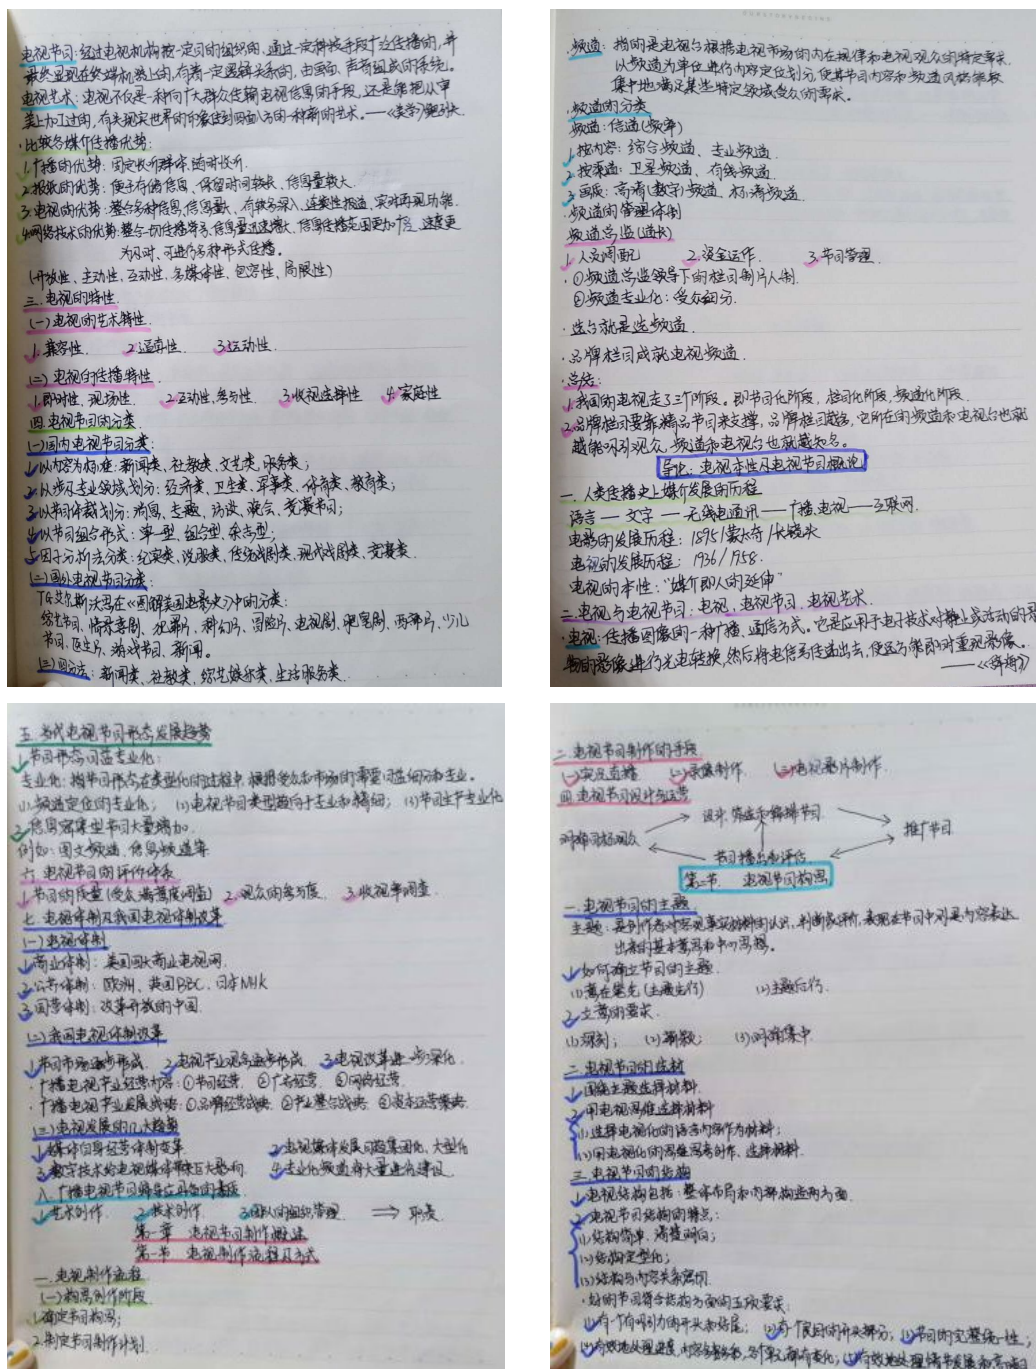 电视节目:经过电视机构按一定目的组织的、通过一定科技手段广泛传播的,并
最终显现在终端机器上的,有着一定逻辑关系的,由画面、声音组成的系统。
电视艺术:电视不仅是一种向广大群众传输电视信息的手段,还是能把从审
美上加工过的,有关现实世界的印象传到四面八方的一种新的艺术。——《美学》鲍列夫
·比较各媒介传播优势:
1.广播的优势:固定收听群体、随时收听.
2.报纸的优势:便于存储信息、保留时间较长、信息量较大.
3.电视的优势:整合多种信息,信息量大,有较多深入、连续性报道,实时再现功能.
4.网络技术的优势:整合一切传播符号,信息量迅速增大、信息传播范围更加广泛,速度更
为及时、可进行多种形式传播。
(开放性、主动性、互动性、多媒体性、包容性、局限性)
三.电视的特性
(一)电视的艺术特性
1.兼容性. 2.逼真性. 3.运动性
(二)电视的传播特性
1.即时性,现场性. 2.互动性,参与性 3.收视选择性 4.家庭性
四.电视节目的分类
(一)国内电视节目分类:
1.以内容为标准:新闻类、社教类、文艺类、服务类;
2.以涉及专业领域划分:经济类、卫生类、军事类、体育类、教育类;
3.以节目体裁划分:消息、专题、访谈、晚会、竞赛节目;
4.以节目组合形式:单一型,组合型,杂志型;
5.因子分析法分类:纪实类、说服类、传统戏剧类、现代戏剧类、竞赛类
(二)国外电视节目分类:
TG艾尔斯沃思在《图解美国电影史》中的分类:
综艺节目,情景喜剧,犯罪片,科幻片,冒险片,电视剧,肥皂剧,西部片,少儿
节目,医生片,游戏节目,新闻。
(三)四分法:新闻类、社教类、综艺娱乐类、生活服务类.
·频道:指的是电视台根据电视市场的内在规律和电视观众的特定需求
以频道为单位进行内容定位划分,使其节目内容和频道风格能较
集中地满足某些特定领域受众的需求。
·频道的分类
频道:信道(频率)
1.按内容:综合频道、专业频道.
2.按渠道:卫星频道、有线频道.
3.画质:高清(数字)频道、标清频道.
·频道的管理体制
频道总监(道长)
1.人员调配 2.资金运作. 3.节目管理.
·①频道总监领导下的栏目制片人制.
②频道专业化:受众细分.
·选台就是选频道.
·品牌栏目成就电视频道.
·总结:
1.我国的电视走了三个阶段。即节目化阶段,栏目化阶段,频道化阶段.
2.品牌栏目要靠精品节目来支撑,品牌栏目越多,它所在的频道和电视台也就
越能吸引观众,频道和电视台也就越知名。
导论:电视本性及电视节目概论
一.人类传播史上媒介发展的历程
语言——文字——无线电通讯——广播,电视——互联网.
电影的发展历程:1895/蒙太奇/长镜头
电视的发展历程:1936/1958.
电视的本性:“媒介即人的延伸”
二.电视与电视节目:电视、电视节目、电视艺术.
·电视:传播图像的一种广播、通信方式。它是应用电子技术对静止或活动的景
物的影像进行光电转换,然后将电信号传送出去,使远方能即时重现影像。
——《辞海》
五.当代电视节目形态发展趋势
1.节目形态日益专业化:
专业化:指节目形态在类型化的过程中,根据受众和市场的需要日益细分和专业。
(1)频道定位的专业化; (2)电视节目类型趋向于专业和精细; (3)节目生产专业化
2.信息密集型节目大量增加.
例如:图文频道、信息频道等
六.电视节目的评价体系
1.节目的质量(受众满意度调查) 2.观众的参与度. 3.收视率调查.
七.电视体制及我国电视体制改革
(一)电视体制
1.商业体制:美国四大商业电视网.
2.公共体制:欧洲、英国BBC、日本NHK
3.国营体制:改革开放的中国.
(二)我国电视体制改革
1.节目市场逐步形成. 2.电视产业观念逐步形成. 3.电视改革进一步深化.
·广播电视产业经营内容:①节目经营. ②广告经营. ③网络经营.
·广播电视产业发展战略:①品牌经营战略. ②产业整合战略. ③资本运营策略.
(三)电视发展的几大趋势
1.媒体自身经营体制变革. 2.电视媒体发展日趋集团化、大型化
3.数字技术给电视媒体带来巨大影响. 4.专业化频道将大量进行建设.
八.广播电视节目编导应具备的素质
1.艺术创作. 2.技术创作. 3.团队的组织管理. ⇒ 职责.
第一章 电视节目制作概述
第一节 电视制作流程及方式
一.电视制作流程
(一)构思创作阶段
1.确定节目构思;
2.制定节目制作计划.
二.电视节目制作的手段
(一)实况直播 (二)录像制作. (三)电视影片制作.
四.电视节目设计与运营
设计、筛选和编排节目.
推广节目
节目播出和评估.
第二节. 电视节目构思
一.电视节目的主题
主题:是创作者对客观事实材料的认识,判断和评价,表现在节目中则是内容表达
出来的基本意思和中心思想。
1.如何确立节目的主题.
(1)意在笔先(主题先行) (2)主题后行.
2.立意的要求.
(1)深刻; (2)新颖; (3)明确集中
二.电视节目的选材
1.围绕主题选择材料.
2.用电视思维选择材料
(1)选择电视化的语言内容作为材料;
(2)用电视化的思维思考创作、选择材料.
三.电视节目的结构
1.电视结构包括:整体布局和内部构造两方面.
2.电视节目结构的特点:
(1)结构简单、清楚明白;
(2)结构定型化;
(3)结构与内容关系密切.
·好的节目符合结构方面的五项要求:
(1)有个有吸引力的开头和结尾; (3)节目的完整统一性;